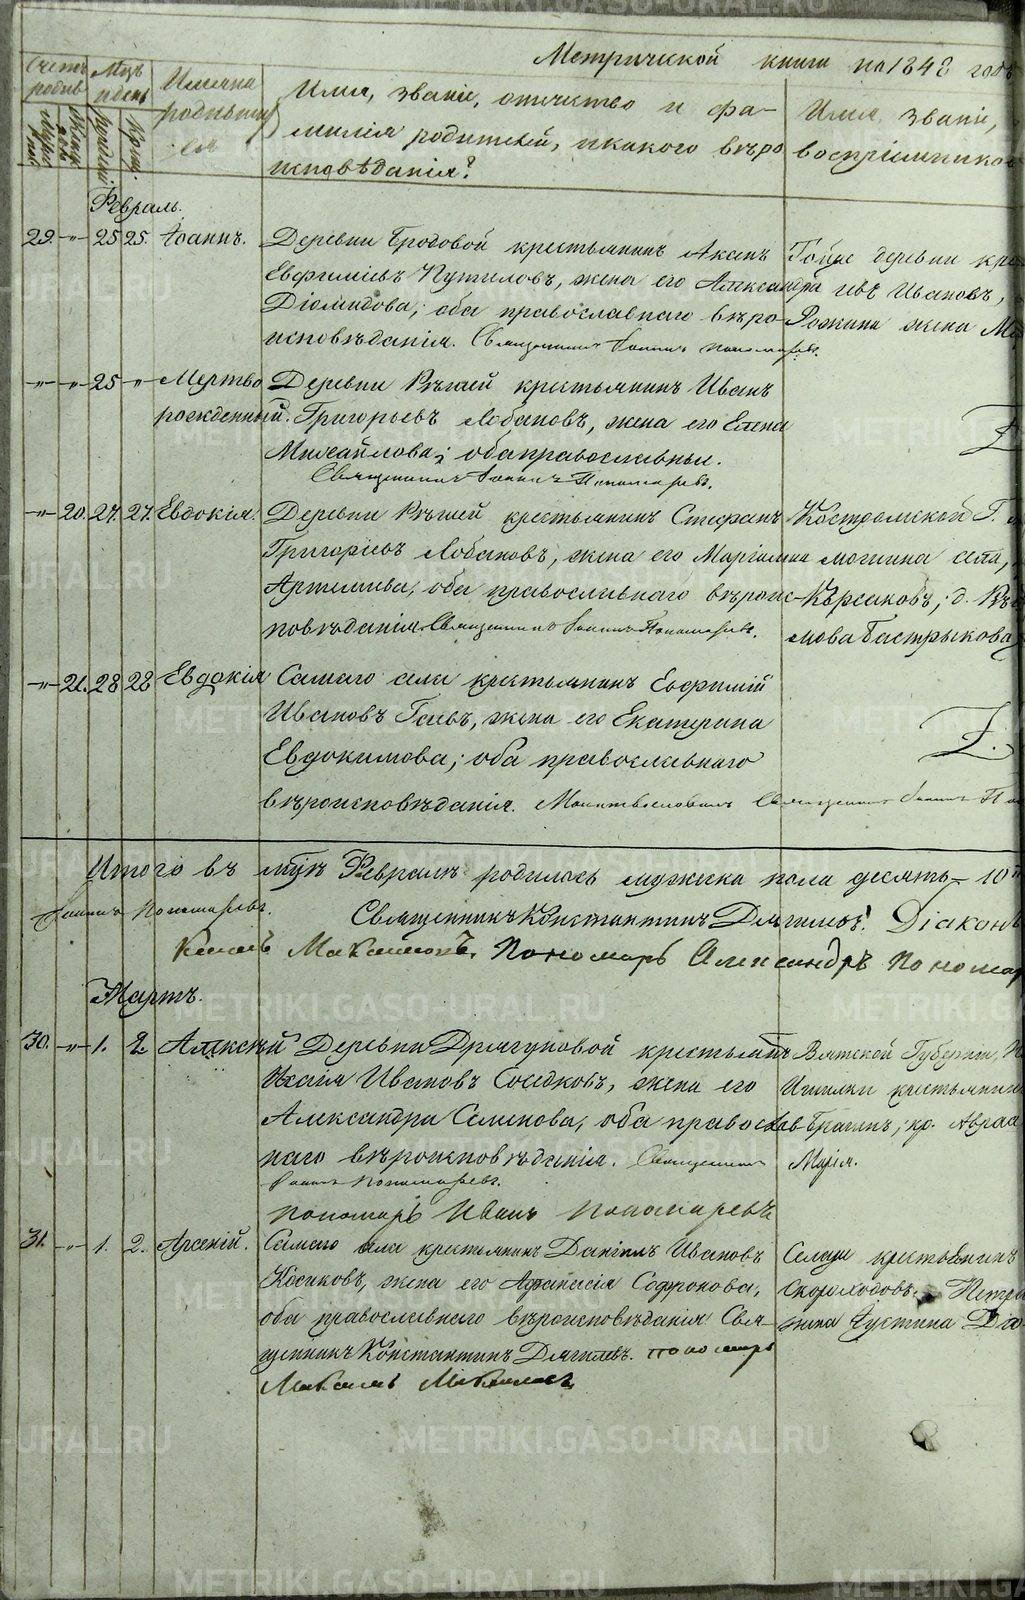 Метрической книги на 1848 годъ
Счетъ родив.
Муж.
Женск.
Мцъ и день
рожденiя
Крещ.
Имена родившихся
Имя, званiе, отчество и фамилiя родителей, и какого вѣроисповѣданiя?
Имя, званiе,
воспрiемников
Февраль.
29. -"- 25 25. Iоаннъ.
Деревни Бродовой крестьянинъ Аксенъ
Евфимiевъ Путиловъ, жена его Александра
Дiомидова; оба православнаго вѣро-
исповѣданiя. Священникъ Iоаннъ Пономаревъ.
Тойже деревни кре
Ивановъ,
жена
-"- -"- 25 -"- Мертво
рожденный.
Деревни крестьянинъ Иванъ
Григорьевъ Лобановъ, жена его Елена
Михайлова; оба православные.
Священникъ Iоаннъ Пономаревъ.
Z
-"- 20. 27. 27. Евдокiя.
Деревни крестьянинъ Стефанъ
Григорьевъ Лобановъ, жена его Марiамна
Артемьева; оба православнаго вѣроис-
повѣданiя. Священникъ Iоаннъ Пономаревъ.
Костромской Г.
села,
Корсаковъ; д.
мова Бастрыкова
-"- 21. 28 28 Евдокiя
Самаго села крестьянинъ Евфимiй
Ивановъ Гаевъ, жена его Екатерина
Евдокимова; оба православнаго
вѣроисповѣданiя. Молитвословилъ Священникъ Iоаннъ По
Z.
Итого въ мцѣ Февралѣ родилось мужеска пола десять - 10
Iоаннъ Пономаревъ. Священникъ Константинъ Дягилевъ. Дiаконъ
Пономарь Александръ Пономар
Мартъ.
30. -"- 1. 2 Алексѣй
Деревни Драгуновой крестьянинъ
Исаiя Ивановъ Соседковъ, жена его
Александра Семенова; оба православ
наго вѣроисповѣданiя. Священникъ
Iоаннъ Пономаревъ.
пономарь Иванъ Пономаревъ
Вятской Губернiи,
крестьянинъ
Брагинъ; кр. Авраа
Марiя.
31. -"- 1. 2. Арсенiй.
Самаго села крестьянинъ Данiилъ Ивановъ
Косиковъ, жена его Афанасiя Софронова,
оба православнаго вѣроисповѣданiя Свя-
щенникъ Константинъ Дягилевъ. пономарь
Селаже крестьянинъ
Скороходовъ. Петра
жена Iустина Дiо-
METRIKI.GASO-URAL.RU